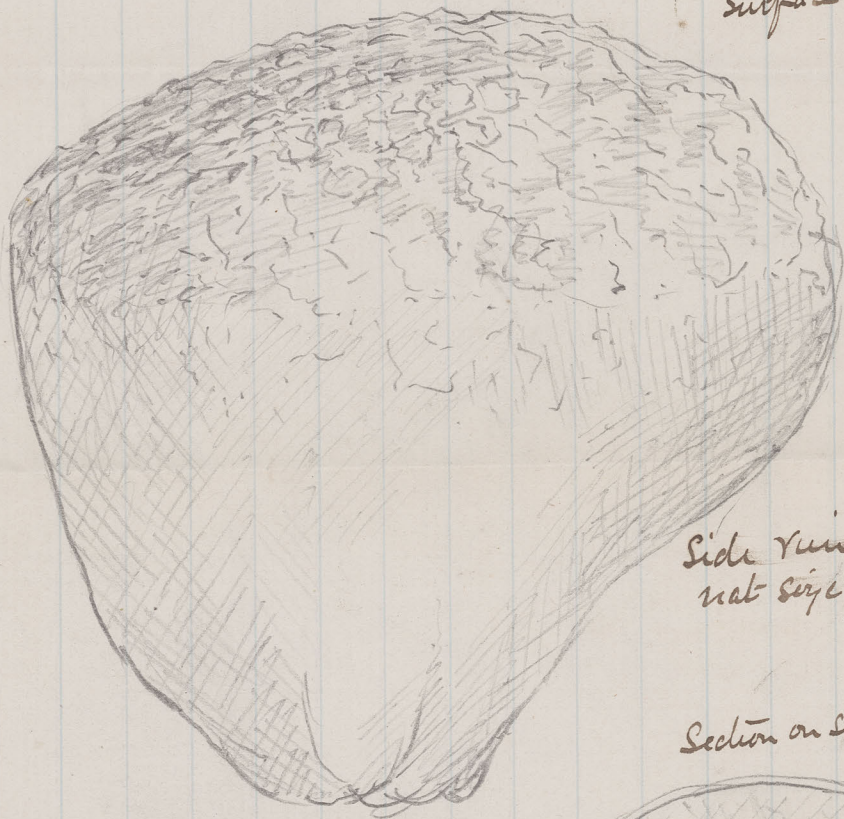 Surfac
Side View
nat size
Section on S